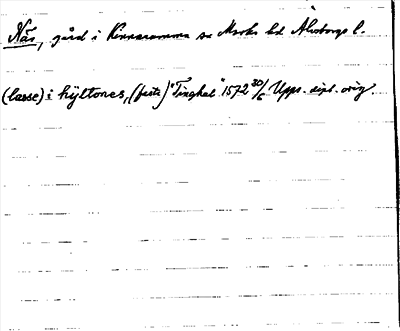 Näs, gård i Kinnarumma sn Marks hd Älvsborgs l.
(lasse) i hÿltones, (fasta) "Tinghel" 1572 30/6 Upps. dipl. orig.